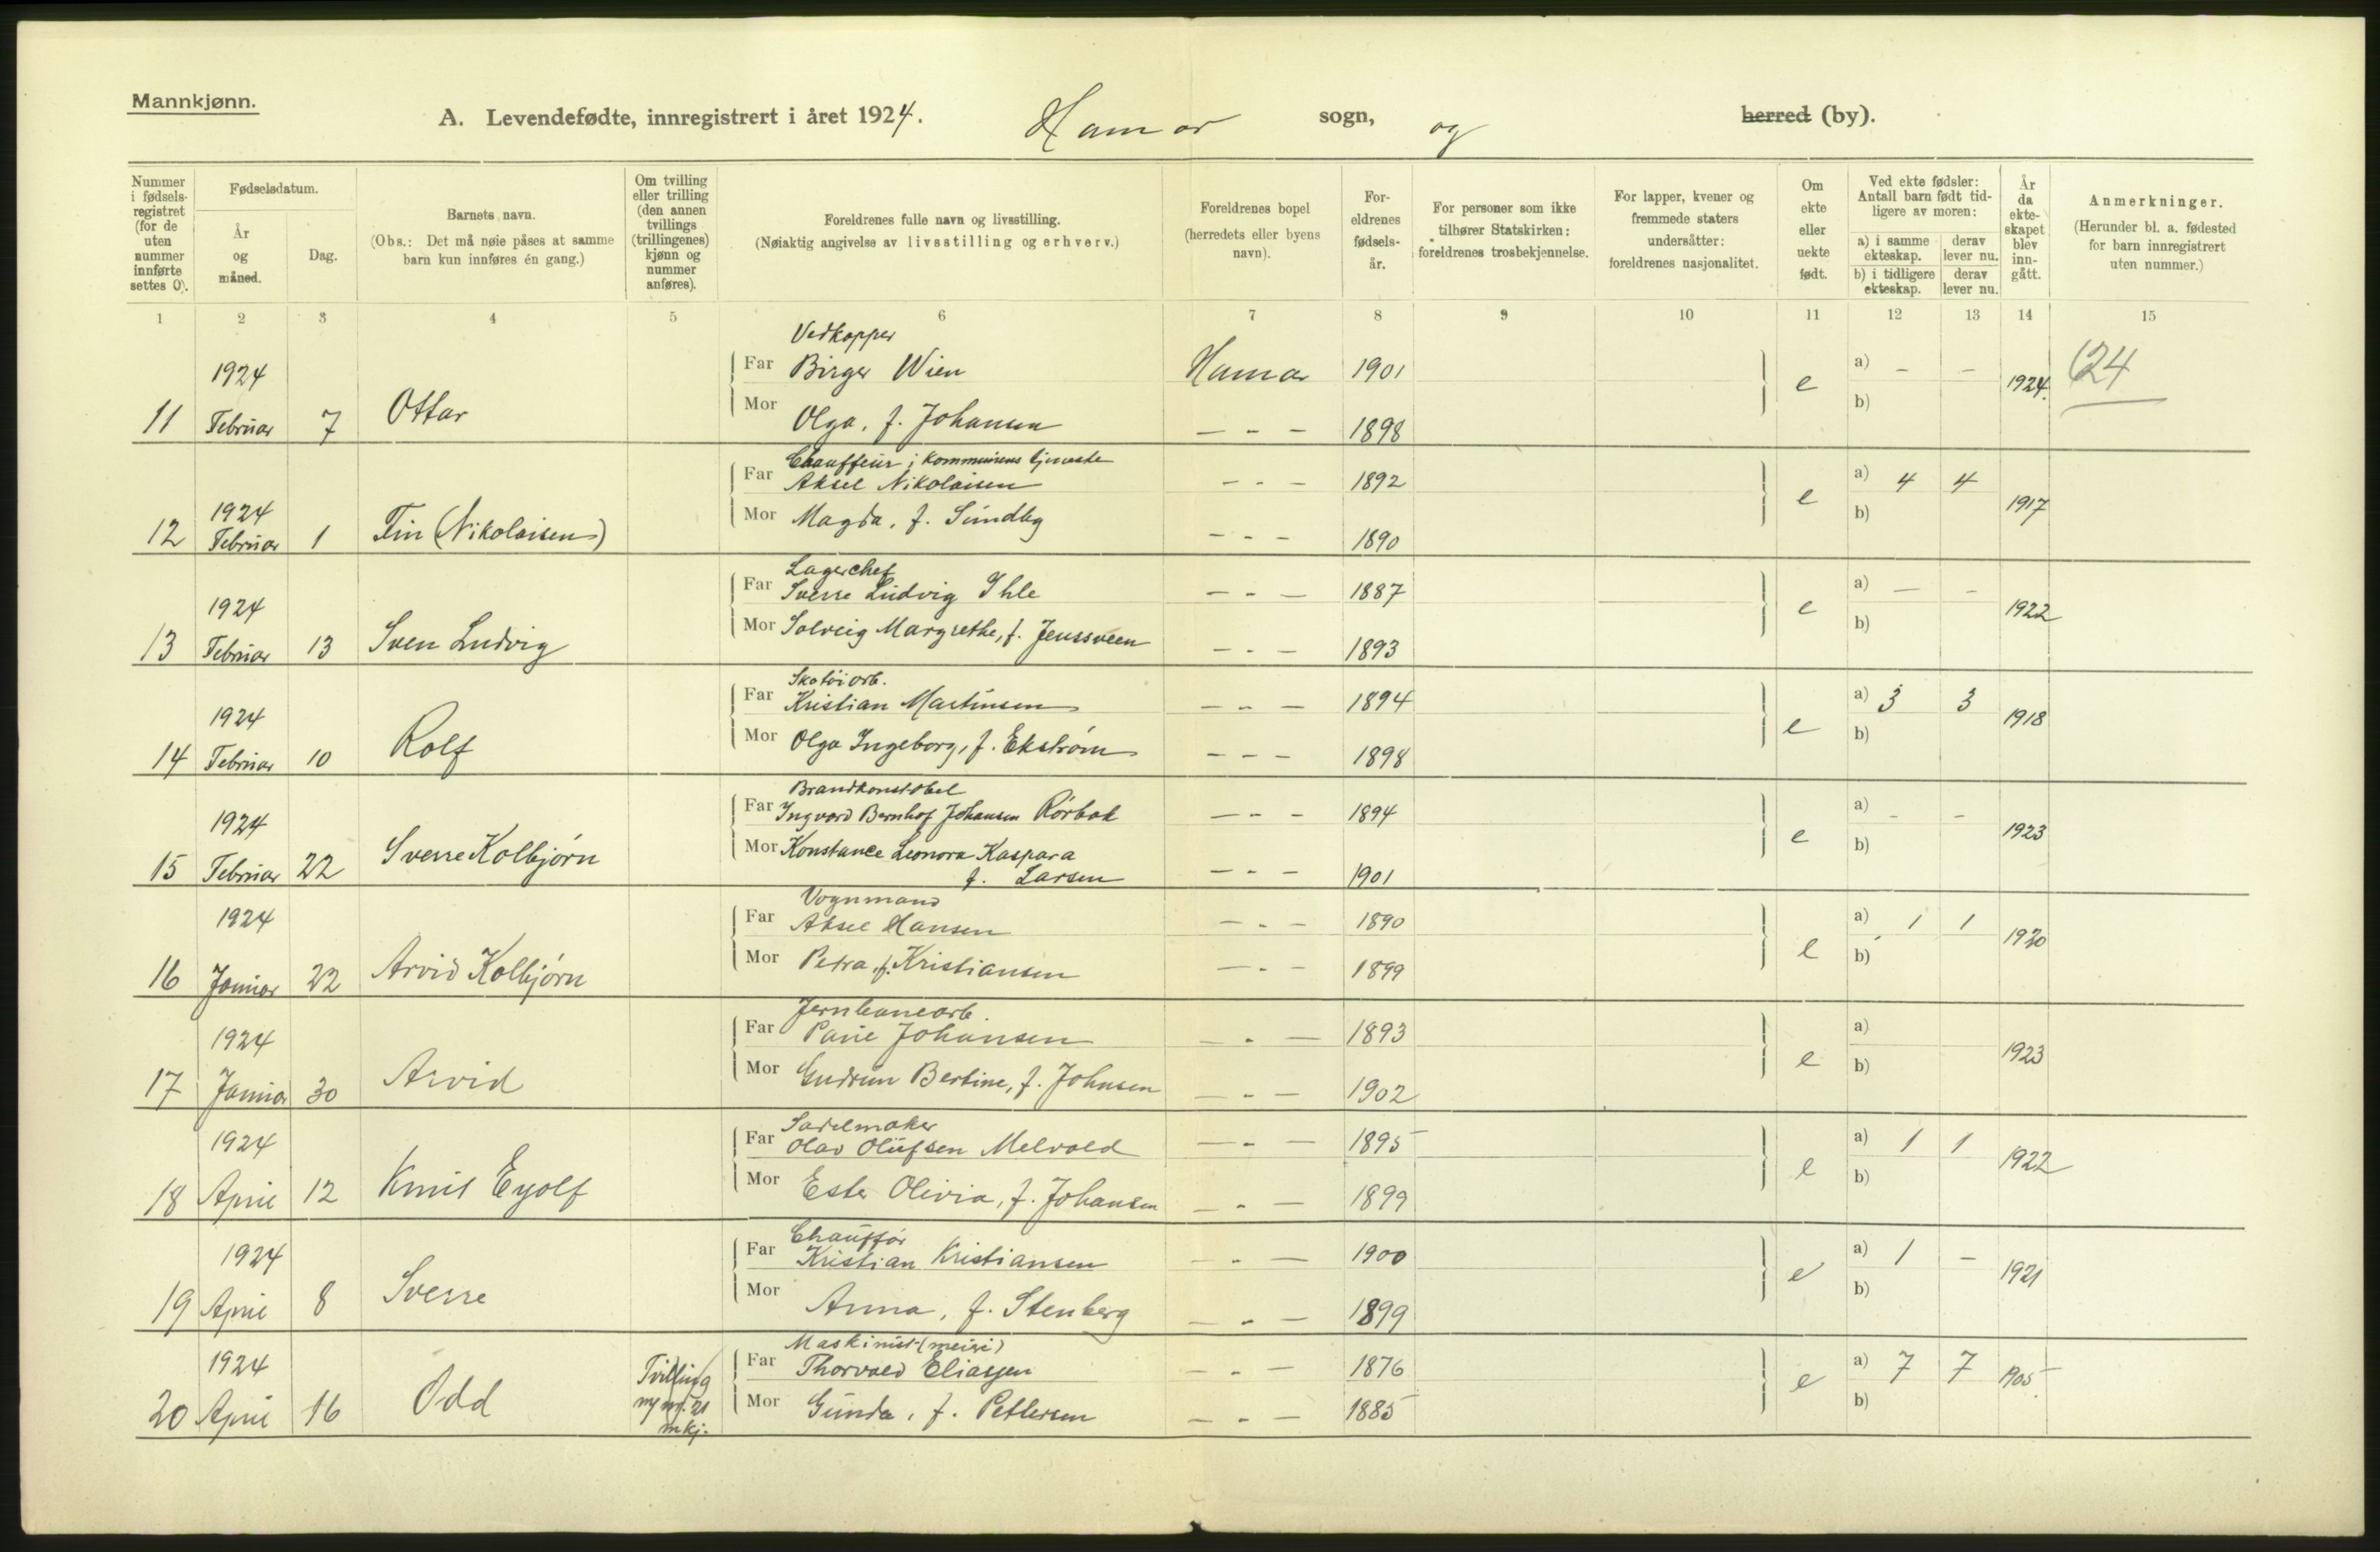 Mannkjønn.
A. Levendefødte, innregistrert i året 1924. Hamar sogn, og herred (by).
Nummer i fødsels-registret (for de uten nummer innførte settes 0).
Fødselsdatum.
År og måned.
Dag.
Barnets navn.
(Obs.: Det må nøie påses at samme barn kun innføres én gang.)
Om tvilling eller trilling (den annen tvillings (trillingenes) kjønn og nummer anføres).
Foreldrenes fulle navn og livsstilling.
(Nøiaktig angivelse av livsstilling og erhverv.)
Foreldrenes bopel (herredets eller byens navn).
For-eldrenes fødsels-år.
For personer som ikke tilhører Statskirken: foreldrenes trosbekjennelse.
For lapper, kvener og fremmede staters undersåtter: foreldrenes nasjonalitet.
Om ekte eller uekte født.
Ved ekte fødsler: Antall barn født tid-ligere av moren:
a) i samme ekteskap. derav lever nu.
b) i tidligere ekteskap. derav lever nu.
År da ekte-skapet blev inn-gått.
Anmerkninger.
(Herunder bl. a. fødested for barn innregistrert uten nummer.)
1 2 3 4 5 6 7 8 9 10 11 12 13 14 15
Vedkapper
1924 Far Birger Wien Hamar 1901 e a) - - 1924. 624
11 Februar 7 Ottar Mor Olga, f. Johansen - - - 1898 b)
Chauffeur i kommunens tjeneste
1924 Far Aksel Nikolaisen - - - 1892 e a) 4 4 1917
12 Februar 1 Finn (Nikolaisen) Mor Magda, f. Sundby - - - 1890 b)
Lagerchef
1924 Far Sverre Ludvig Ihle - - - 1887 e a) - - 1922
13 Februar 13 Sven Ludvig Mor Solveig Margrethe, f. Jenssveen - - - 1893 b)
Skotøiarb.
1924 Far Kristian Martinsen - - - 1894 e a) 3 3 1918
14 Februar 10 Rolf Mor Olga Ingeborg, f. Ekstrøm - - - 1898 b)
Brandkonstabel
1924 Far Ingvard Bernhof Johansen Rørbak - - - 1894 e a) - - 1923
15 Februar 22 Sverre Kolbjørn Mor Konstance Leonora Kaspara
f. Larsen - - - 1901 b)
Vognmand
1924 Far Aksel Hansen - - - 1890 e a) 1 1 1920
16 Januar 22 Arvid Kolbjørn Mor Petra, f. Kristiansen - - - 1899 b)
Jernbanearb.
1924 Far Paul Johansen - - - 1893 e a) 1923
17 Januar 30 Arvid Mor Gudrun Bertine, f. Johnsen - - - 1902 b)
Sadelmaker
1924 Far Olav Olufsen Melvold - - - 1895 e a) 1 1 1922
18 April 12 Knut Eyolf Mor Ester Olivia, f. Johansen - - - 1899 b)
Chauffør
1924 Far Kristian Kristiansen - - - 1900 e a) 1 - 1921
19 April 8 Sverre Mor Anna, f. Stenberg - - - 1899 b)
Maskinist (meieri)
1924 Tvilling Far Thorvald Eliassen - - - 1876 e a) 7 7 1905
20 April 16 Odd nr. 21 Mor Gunda, f. Pettersen - - - 1885 b)
mkj.